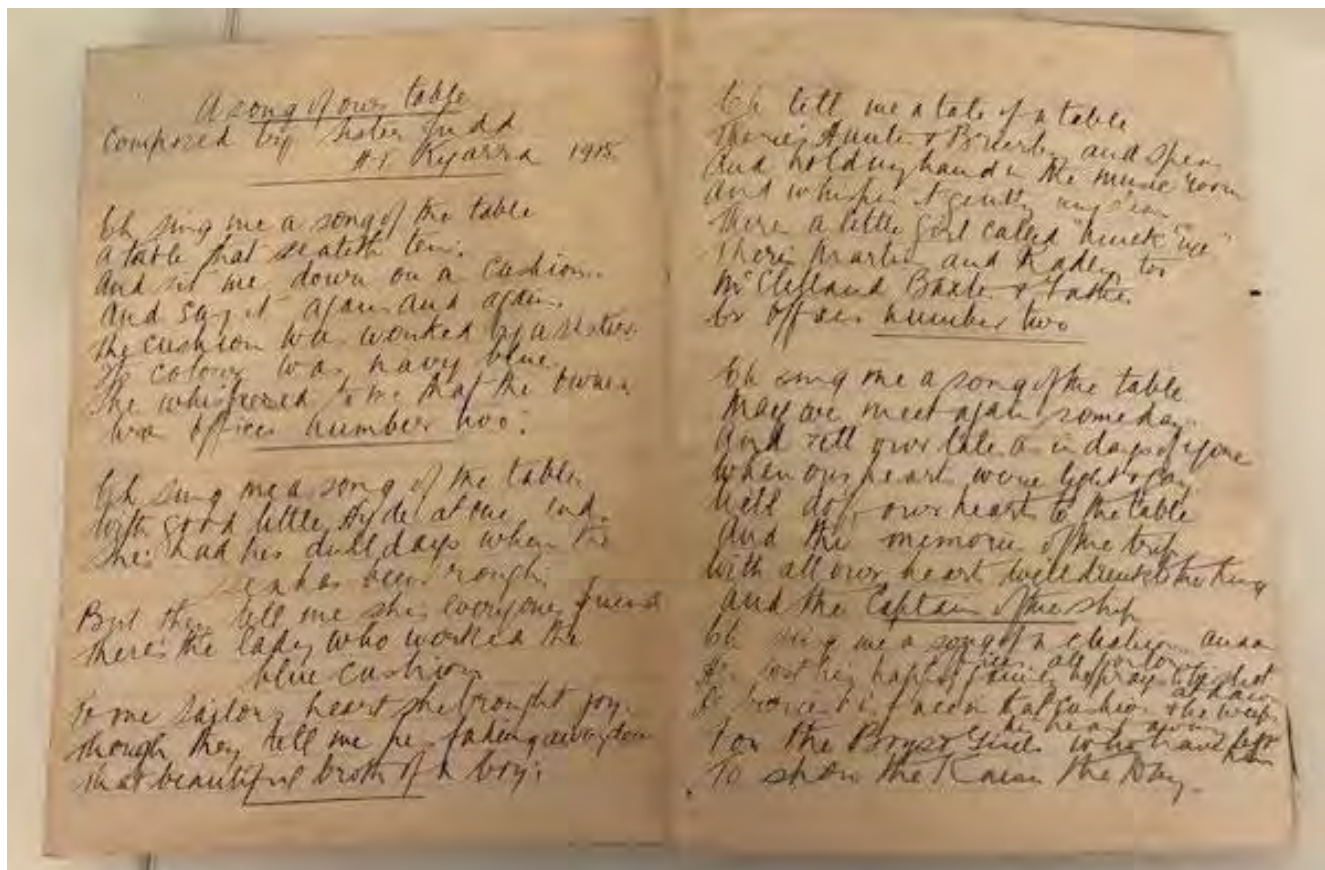 A song of our table
Composed by Sister Judd
HT Kyarra 1915.
Oh sing me a song of the table
a table that seateth ten.
And sit me down on a cushion.
And say it again and again.
The cushion was worked by a sister
Its colour was navy blue.
She whispered to me that the owner
was officer number two.
Oh sing me a song of the table
With good little Hyde at one end.
She's had her dull days when the
sea has been rough.
But they tell me she's everyone's friend
there's the lady who worked the
blue cushion
To one sailor's heart she brought joy.
though they tell me he's fading away
that beautiful broth of a boy.
Oh tell me a tale of a table
There's Hunter & and Spen
And hold my hand in the music room
And whisper it gently
There's a little girl called
There's Martin and Radley too
McClelland Baxter &
or officer number two
Oh sing me a song of the table
May we meet again someday.
And tell our tale as in days of yore
When our hearts were light & gay
We'll our hearts to the table
And the memory of the trip
With all our heart we'll drink to the King
and the Captain of the ship
Oh sing me a song of a cushion
lost his happy family
face on that cushion & he weeps
For the Boys & Girls who have left him
To show the Kaiser the Day.